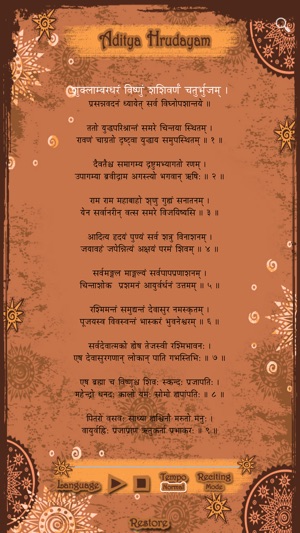 Aditya Hrudayam
शुक्लाम्बरधरं विष्णुं शशिवर्णं चतुर्भुजम् ।
प्रसन्नवदनं ध्यायेत् सर्व विघ्नोपशान्तये ॥
ततो युद्धपरिश्रान्तं समरे चिन्तया स्थितम् ।
रावणं चाग्रतो दृष्ट्वा युद्धाय समुपस्थितम् ॥ १ ॥
दैवतैश्च समागम्य द्रष्टुमभ्यागतो रणम् ।
उपागम्या ब्रवीद्रामं अगस्त्यो भगवान् ऋषिः ॥ २ ॥
राम राम महाबाहो शृणु गुह्यं सनातनम् ।
येन सर्वानरीन् वत्स समरे विजयिष्यसि ॥ ३ ॥
आदित्य हृदयं पुण्यं सर्व शत्रु विनाशनम् ।
जयावहं जपेन्नित्यं अक्षयं परमं शिवम् ॥ ४ ॥
सर्वमङ्गल माङ्गल्यं सर्वपापप्रणाशनम् ।
चिन्ताशोक प्रशमनं आयुर्वर्धनं उत्तमम् ॥ ५ ॥
रश्मिमन्तं समुद्यन्तं देवासुर नमस्कृतम् ।
पूजयस्व विवस्वन्तं भास्करं भुवनेश्वरम् ॥ ६ ॥
सर्वदेवात्मको ह्येष तेजस्वी रश्मिभावनः ।
एष देवासुरगणान् लोकान् पाति गभस्तिभिः ॥ ७ ॥
एष ब्रह्मा च विष्णुश्च शिवः स्कन्दः प्रजापतिः ।
महेन्द्रो धनदः कालो यमः सोमो ह्यपांपतिः ॥ ८ ॥
पितरो वसवः साध्या ह्यश्विनौ मरुतो मनुः ।
वायुर्वह्निः प्रजाप्राण ऋतुकर्ता प्रभाकरः ॥ ९ ॥
Language
Tempo
Normal
Reciting
Mode
Restore